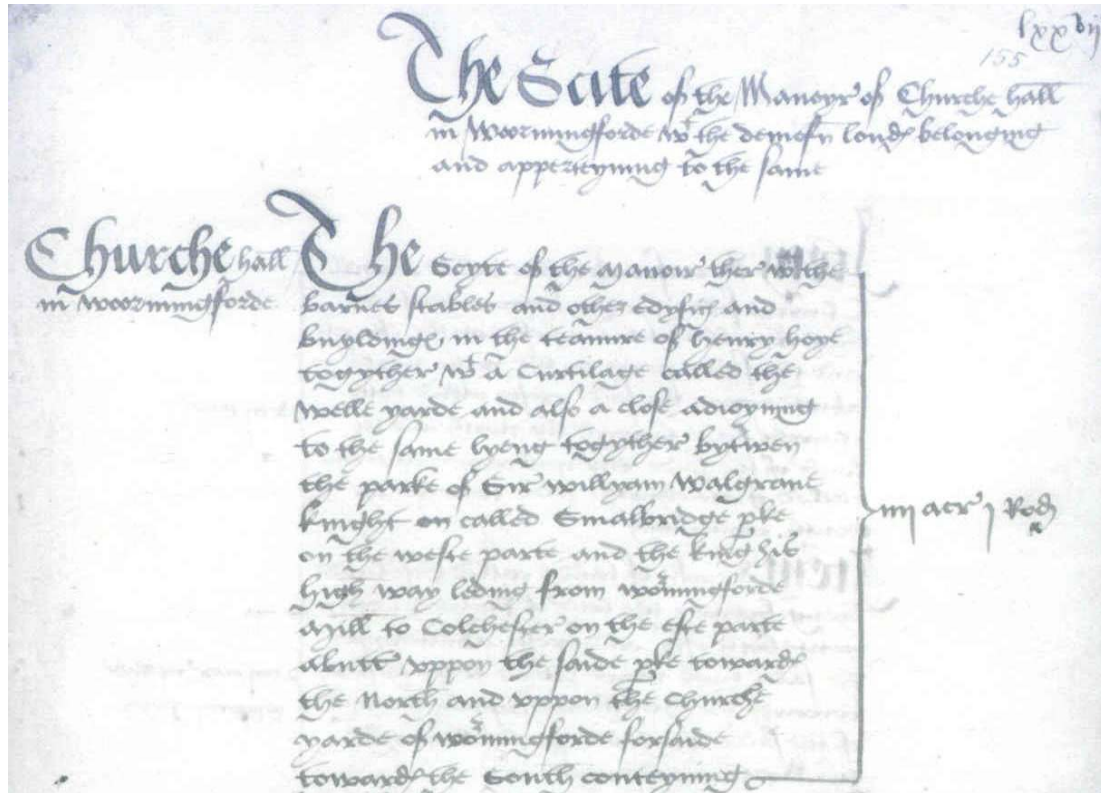 lxxvij
155
The Scite of the Manoyr of Churche hall
in Woormingforde wt the demesn londs belonging
and apperteyning to the same
Churche hall
in woormingforde
The Scyte of the manoir ther wt the
barnes stables and other edyfics and
buyldings in the teanure of henry hoye
togyther wt a Curtilage called the
welle yarde and also a close adioyning
to the same lyeng togyther bytwen
the parke of Sir willyam walgrave
knight on called Smalbridge pke
on the weste parte and the king his
high way leding from wormingforde
mill to Colchester on the este parte
abutt vppon the saide pke towards
the North and vppon the Churche
yarde of wormingforde forsaide
towards the South conteyning
iiij acr j Rod